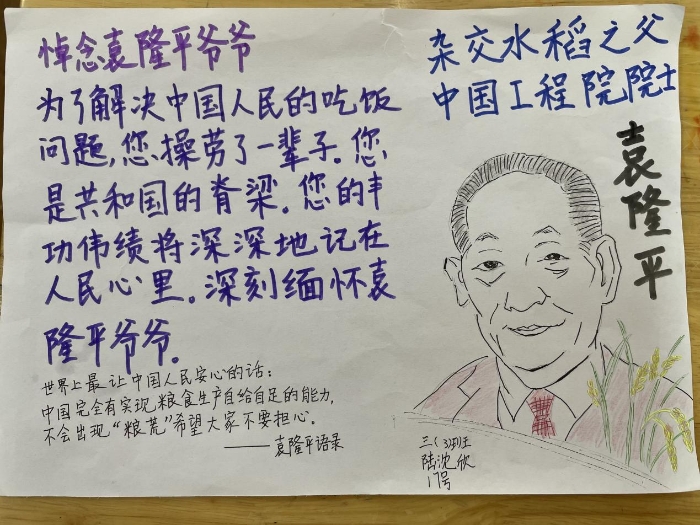 悼念袁隆平爷爷
为了解决中国人民的吃饭
问题,您操劳了一辈子。您
是共和国的脊梁。您的丰
功伟绩将深深地记在
人民心里。深刻缅怀袁
隆平爷爷。
世界上最让中国人民安心的话:
中国完全有实现粮食生产自给自足的能力,
不会出现“粮荒”希望大家不要担心。
——袁隆平语录
杂交水稻之父
中国工程院院士
袁隆平
三(3)班
陆沈欣
17号